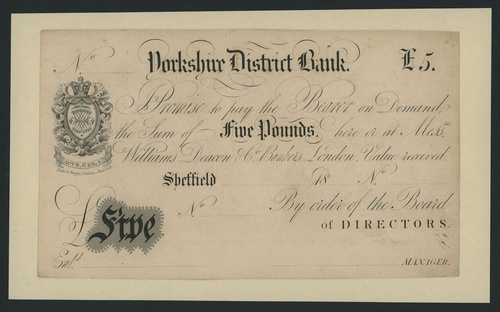 No
Yorkshire District Bank. £5.
I Promise to pay the Bearer on Demand
the Sum of Five Pounds, here or at Messrs
Williams Deacon & Co. Bankers London. Value received.
Sheffield 18 No
No By order of the Board
of DIRECTORS.
£ Five
Entd. MANAGER.